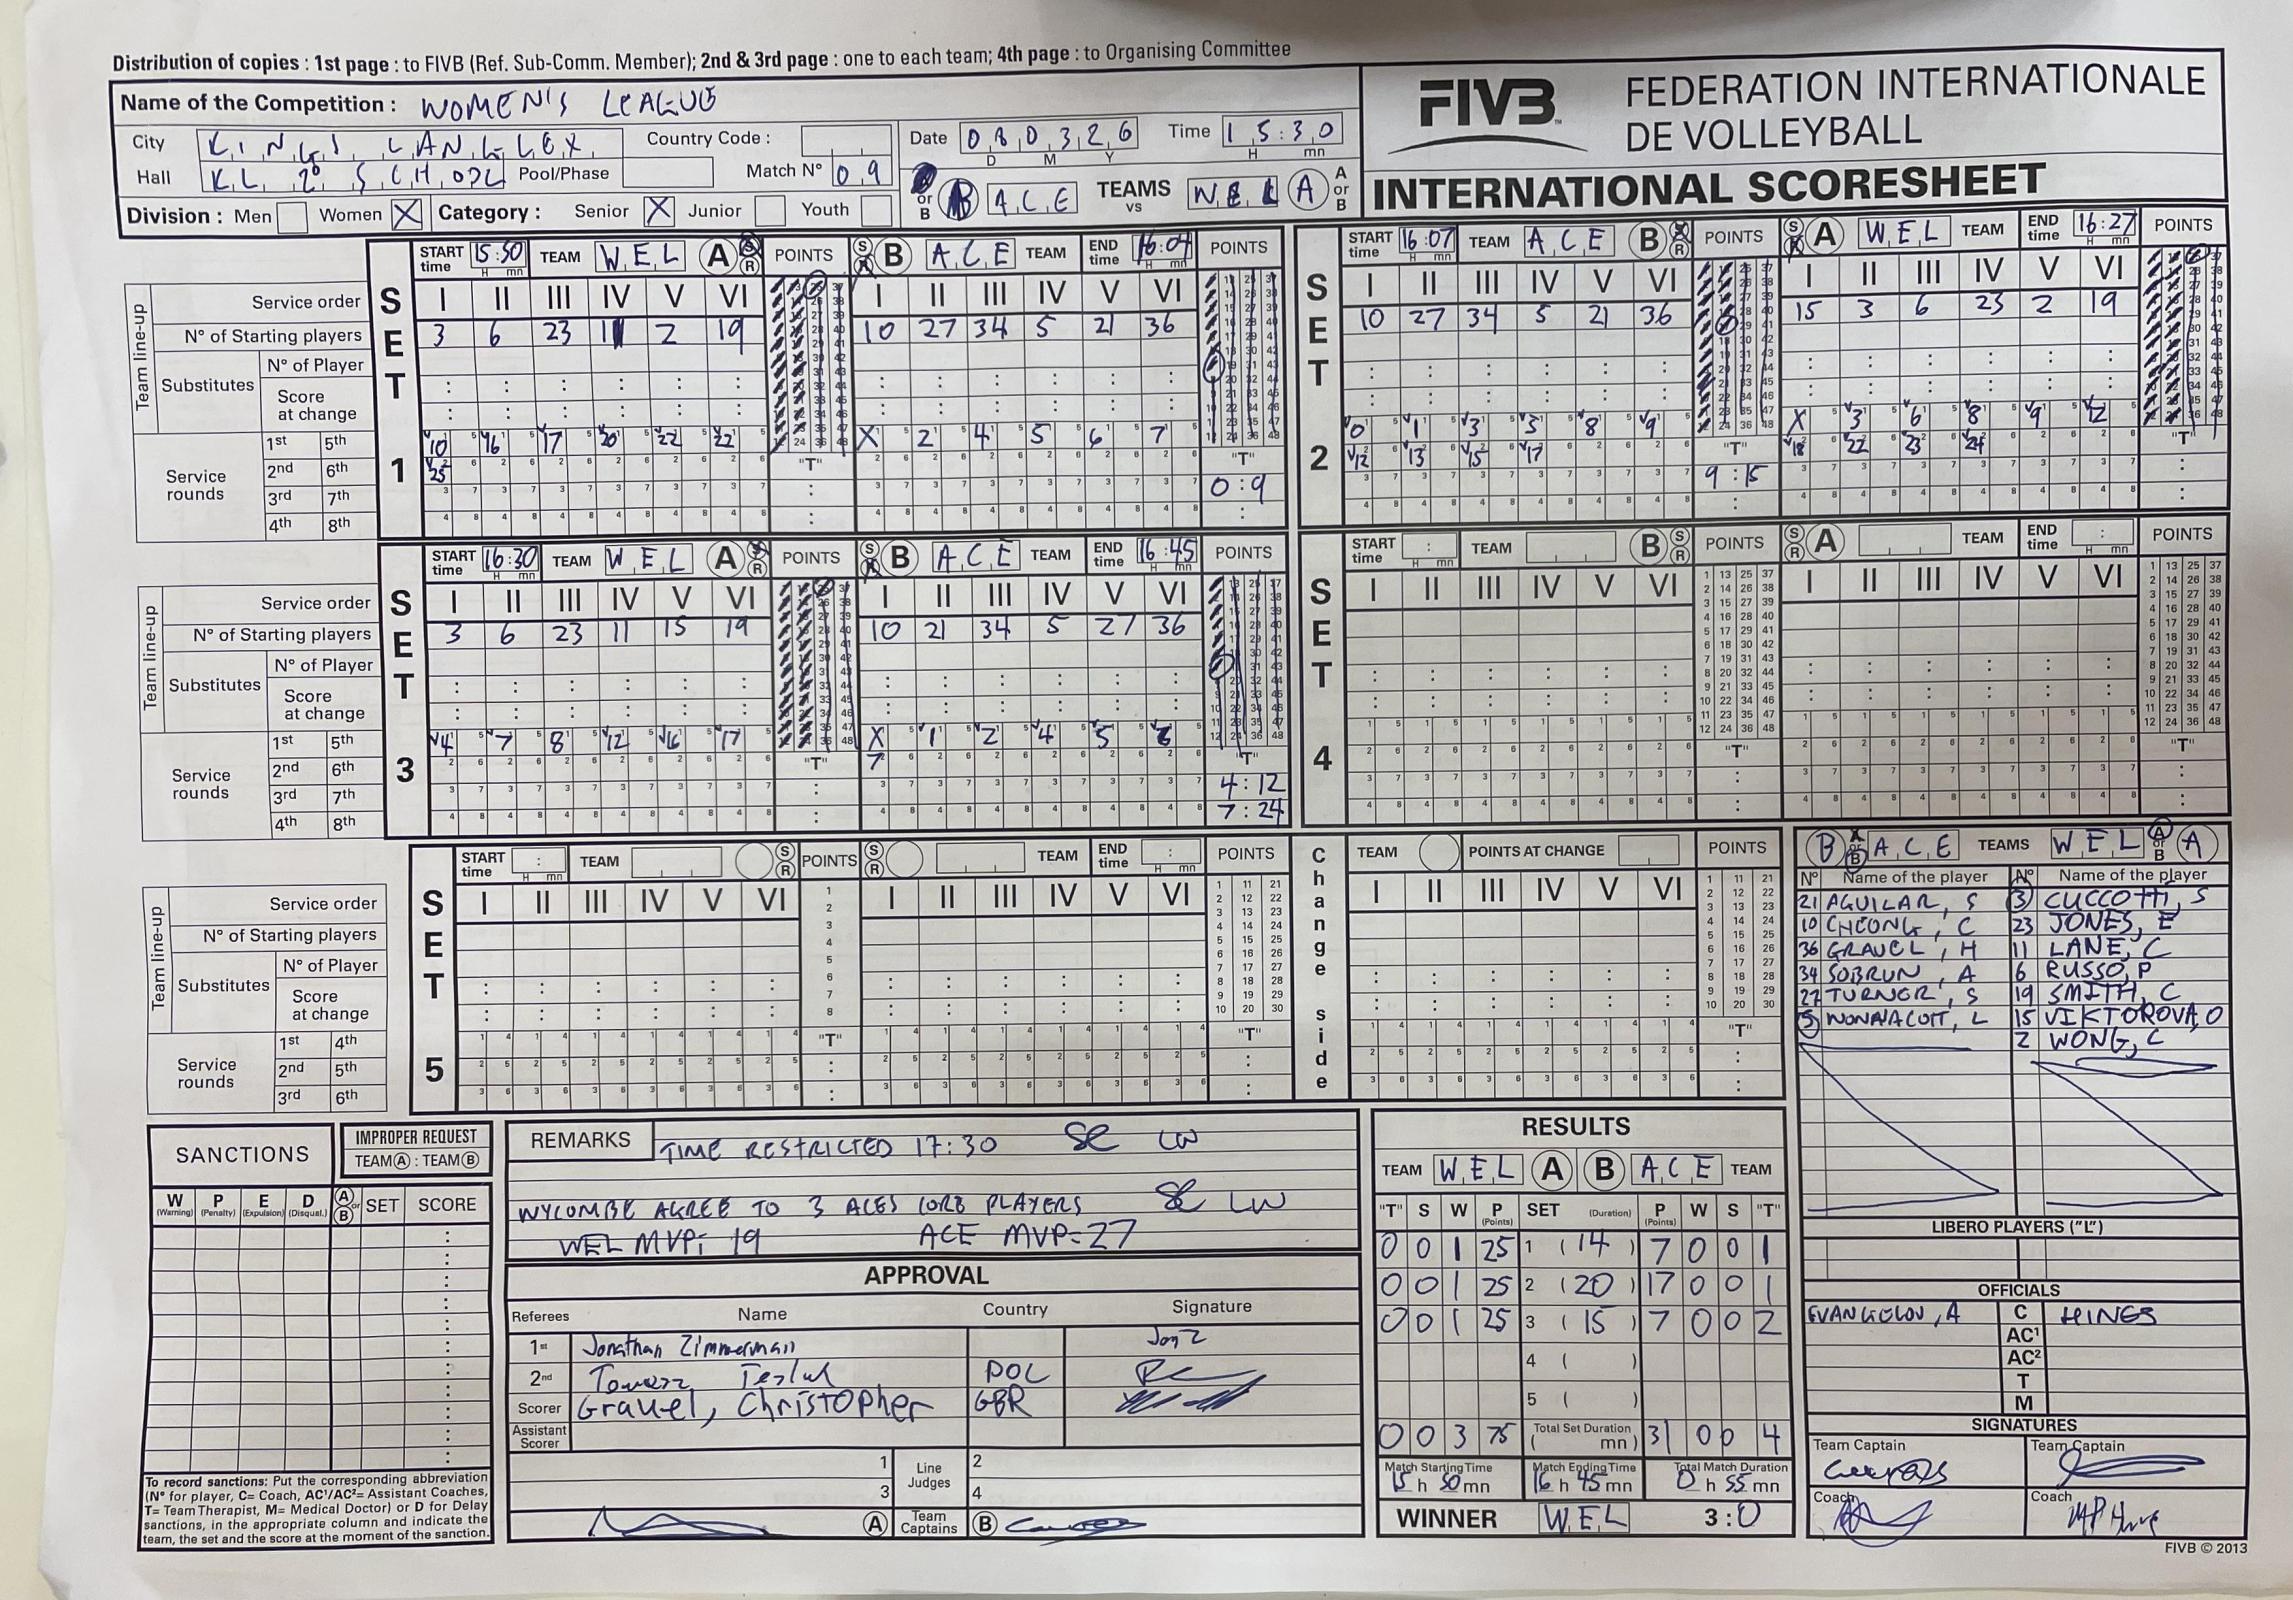 Distribution of copies : 1st page : to FIVB (Ref. Sub-Comm. Member); 2nd & 3rd page : one to each team; 4th page : to Organising Committee
FIVB FEDERATION INTERNATIONALE DE VOLLEYBALL
INTERNATIONAL SCORESHEET
Name of the Competition : WOMEN'S LEAGUE
City KINGS LANGLEY Country Code :
Hall KL 20 SCHOOL Pool/Phase Match N° 09
Date 080326 D M Y Time 15:30 H mn
Division : Men Women X Category : Senior X Junior Youth
B ACE TEAMS vs WEL A
Team line-up Service order
N° of Starting players
Substitutes N° of Player
Score at change
Service rounds 1st 5th
2nd 6th
3rd 7th
4th 8th
SET 1
START time 15:30 TEAM WEL A POINTS B ACE TEAM END time 16:04 POINTS
I II III IV V VI I II III IV V VI
3 6 23 11 2 19 10 27 34 5 21 36
10 16 17 20 22 22 X 2 4 5 6 7
25
"T" "T"
0:9
SET 2
START time 16:07 TEAM ACE B POINTS A WEL TEAM END time 16:27 POINTS
I II III IV V VI I II III IV V VI
10 27 34 5 21 36 15 3 6 23 2 19
0 1 3 3 8 9 X 3 6 8 9 12
12 13 15 17 18 22 23 24
"T" "T"
9:15
SET 3
START time 16:30 TEAM WEL A POINTS B ACE TEAM END time 16:45 POINTS
I II III IV V VI I II III IV V VI
3 6 23 11 15 19 10 21 34 5 27 36
4 7 8 12 16 17 X 1 2 4 5 6
7
"T" "T"
4:12
7:24
SET 4
START time TEAM B POINTS A TEAM END time POINTS
I II III IV V VI I II III IV V VI
"T" "T"
SET 5
START time TEAM POINTS TEAM END time POINTS
I II III IV V VI I II III IV V VI
"T" "T"
Change side
TEAM POINTS AT CHANGE POINTS
I II III IV V VI
"T"
B ACE TEAMS WEL A
N° Name of the player N° Name of the player
21 AGUILAR, S 3 CUCCOTTI, S
10 CHEONG, C 23 JONES, E
36 GRAUEL, H 11 LANE, C
34 SOBRUN, A 6 RUSSO, P
27 TURNER, S 19 SMITH, C
5 WONNACOTT, L 15 VIKTOROVA, O
2 WONG, C
LIBERO PLAYERS ("L")
OFFICIALS
EVANGELOV, A C HINES
AC¹
AC²
T
M
SIGNATURES
Team Captain Team Captain
Coach Coach
SANCTIONS
IMPROPER REQUEST
TEAM A : TEAM B
W (Warning) P (Penalty) E (Expulsion) D (Disqual.) A or B SET SCORE
To record sanctions: Put the corresponding abbreviation (N° for player, C= Coach, AC¹/AC²= Assistant Coaches, T= Team Therapist, M= Medical Doctor) or D for Delay sanctions, in the appropriate column and indicate the team, the set and the score at the moment of the sanction.
REMARKS
TIME RESTRICTED 17:30 SC LW
WYCOMBE AGREE TO 3 ACES CORE PLAYERS SC LW
WEL MVP: 19 ACE MVP=27
APPROVAL
Referees Name Country Signature
1st Jonathan Zimmerman Jon Z
2nd POL
Scorer Grauel, Christopher GBR
Assistant Scorer
1 Line Judges 2
3 4
A Team Captains B
RESULTS
TEAM WEL A B ACE TEAM
"T" S W P (Points) SET (Duration) P (Points) W S "T"
0 0 1 25 1 (14) 7 0 0 1
0 0 1 25 2 (20) 17 0 0 1
0 0 1 25 3 (15) 7 0 0 2
4 ( )
5 ( )
0 0 3 75 Total Set Duration ( mn) 31 0 0 4
Match Starting Time 15 h 30 mn Match Ending Time 16 h 45 mn Total Match Duration 0 h 55 mn
WINNER WEL 3:0
FIVB © 2013